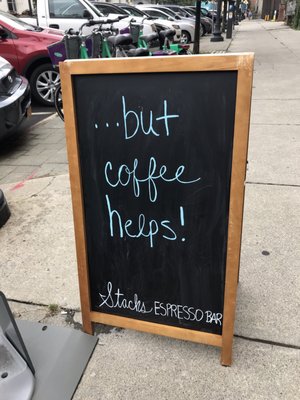 ...but
coffee
helps!
Stacks ESPRESSO BAR